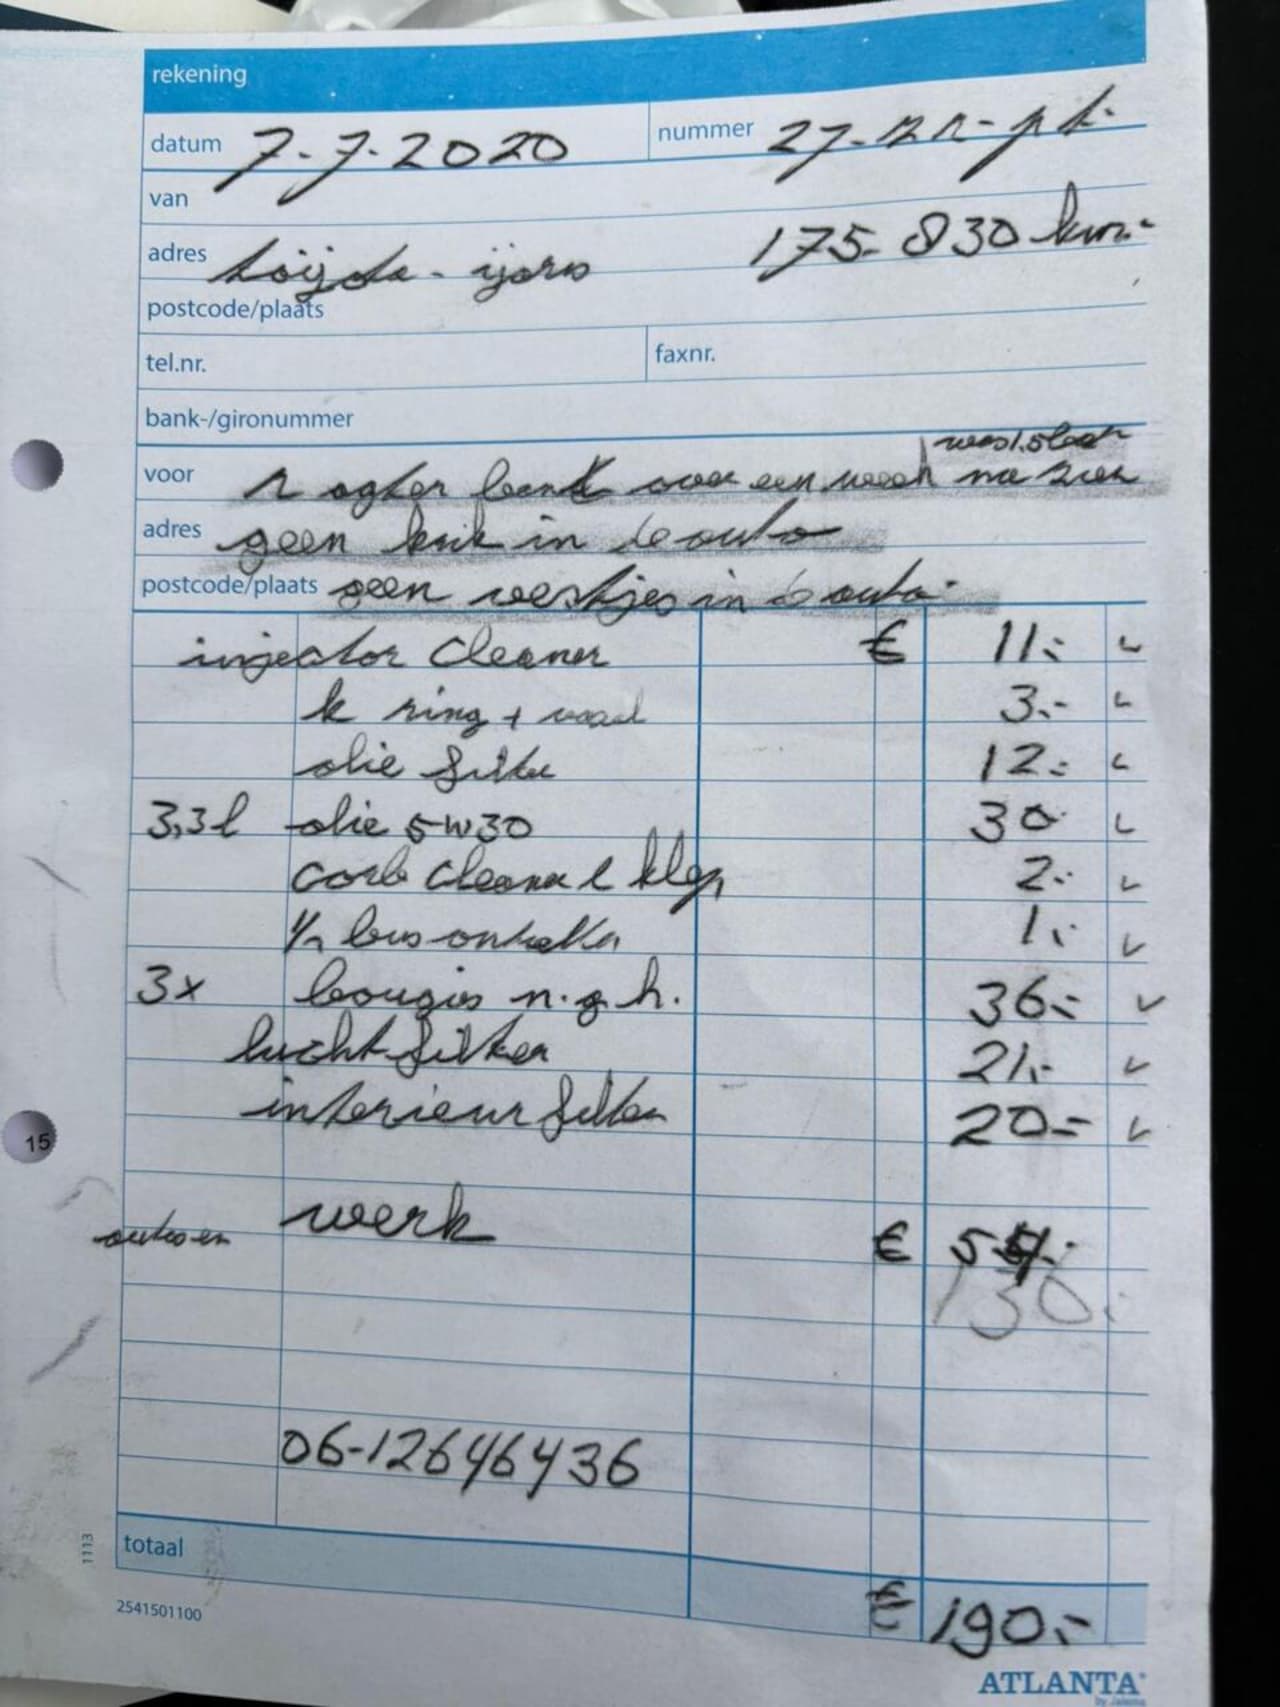 rekening
datum 7-7-2020 nummer 27-
van
175.830 km.-
adres
postcode/plaats
tel.nr. faxnr.
bank-/gironummer
voor band over een week na zien
adres geen in de auto
postcode/plaats geen in auto
injector cleaner € 11.-
k ring + 3.-
olie filter 12.-
3,3l olie 5w30 30
carb cleaner 2.-
1/2 bus 1.-
3x bougies n.g.h. 36.-
luchtfilter 21.-
interieur filter 20.-
werk € 54.-
130.-
06-12646436
totaal
€ 190.-
1113
2541501100
15
ATLANTA
by Jalema